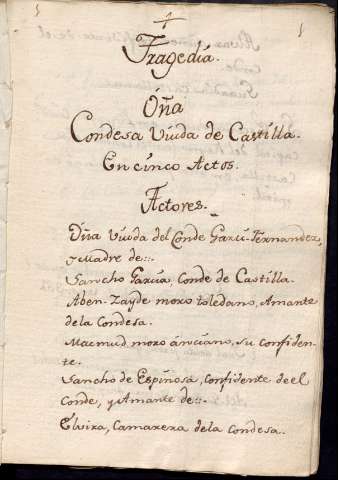 Tragedia.
Oña
Condesa Viuda de Castilla.
En cinco Actos.
Actores.
Oña Viuda del Conde Garci-Fernandez,
y Madre de::.
Sancho Garcia, Conde de Castilla.
Aben-Zayde moro toledano, Amante
dela Condesa.
Macmud moro anciano, su confiden-
te.
Sancho de Espinosa, confidente de el
Conde, y Amante de::.
Elvira, Camarera dela Condesa.